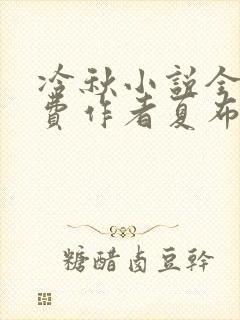 冷秋小説全
費作者夏布
糖醋卤豆幹